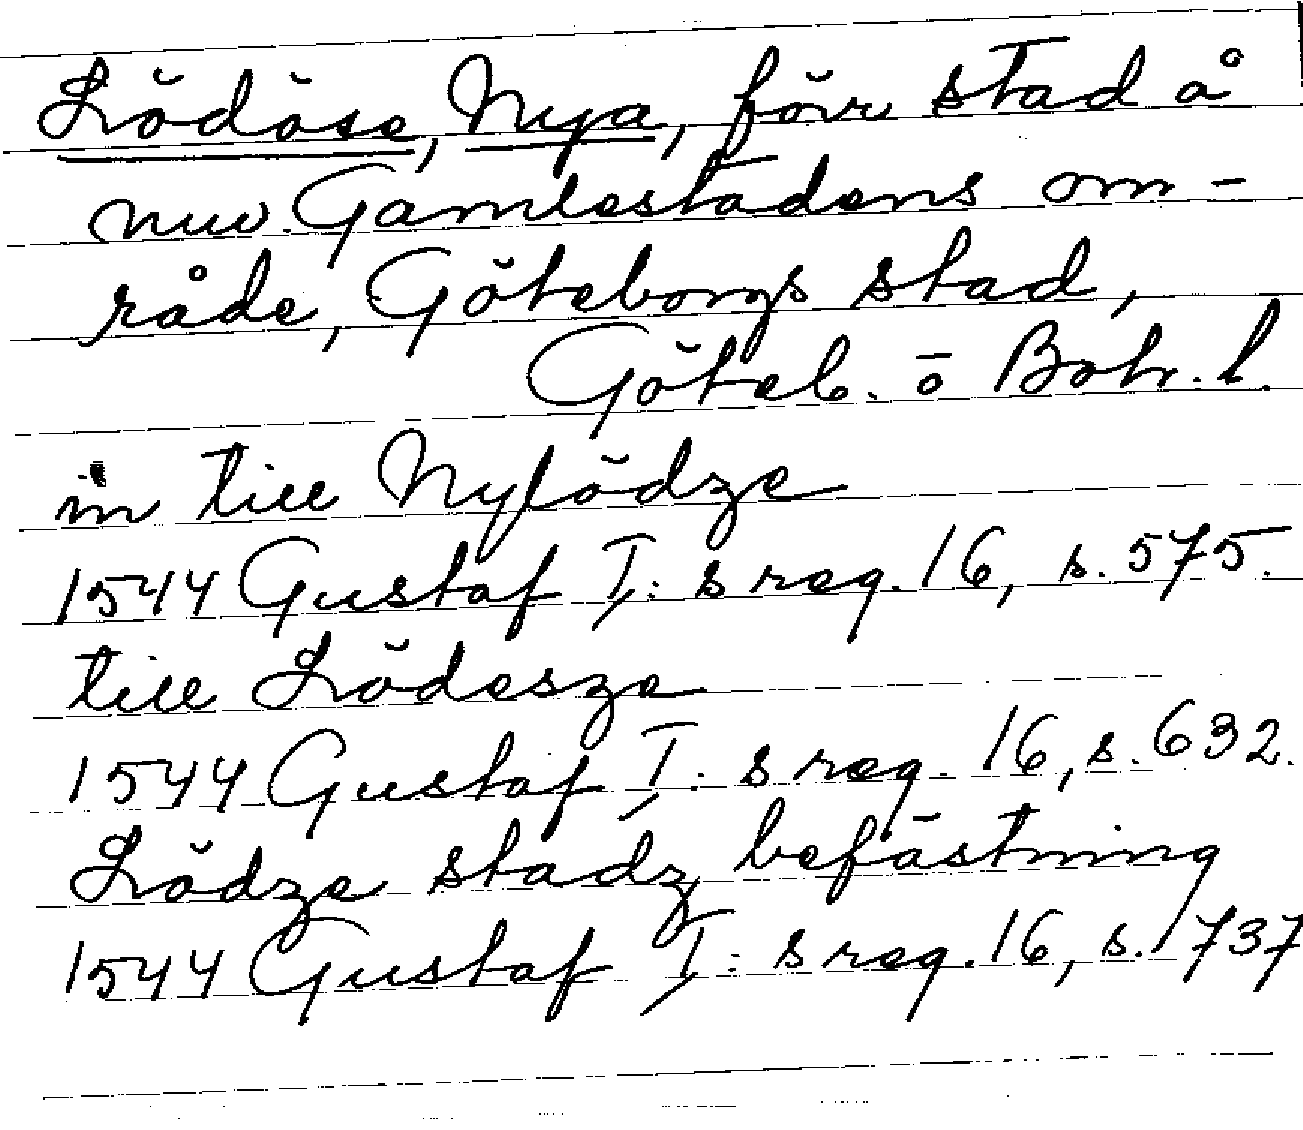 Lödöse, Nya, förr stad å
nuv. Gamlestadens om-
råde, Göteborgs stad,
Göteb. o Boh. l.
in till Nylödze
1544 Gustaf I: s reg. 16, s. 575.
till Lödesze
1544 Gustaf I: s reg. 16, s. 632.
Lödze stadz befästning
1544 Gustaf I: s reg. 16, s. 737